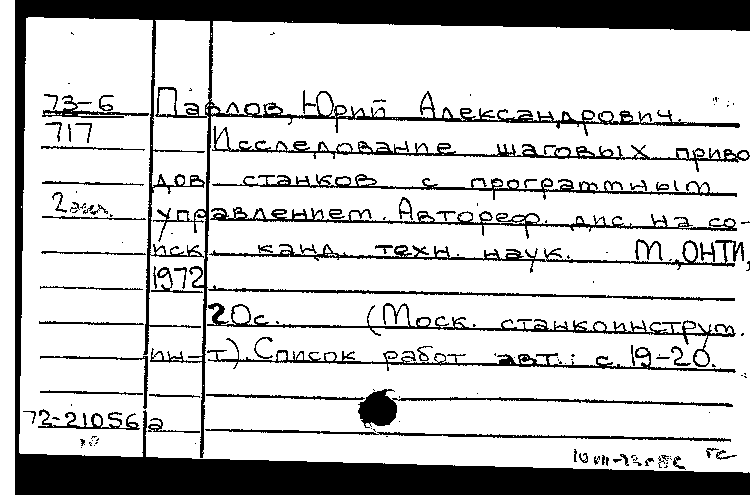 73-6 Павлов, Юрий Александрович.
717 Исследование шаговых приво
дов станков с программным
2 экз. управлением. Автореф. дис. на со-
иск. канд. техн. наук. М., ОНТИ,
1972.
20с. (Моск. станкоинструм.
ин-т). Список работ авт.: с. 19-20.
72-21056 а